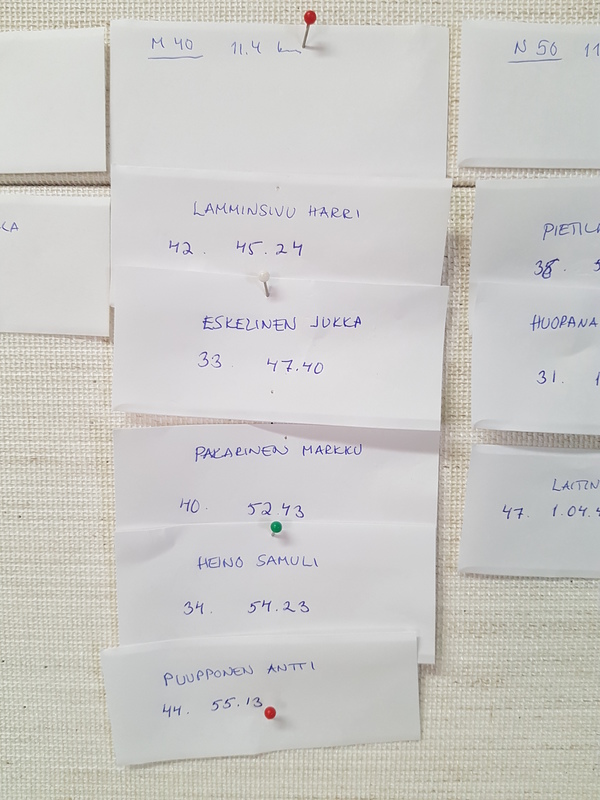 M 40 11.4 km
LAMMINSIVU HARRI
42. 45.24
ESKELINEN JUKKA
33. 47.40
PAKARINEN MARKKU
40. 52.43
HEINO SAMULI
34. 54.23
PUUPPONEN ANTTI
44. 55.13
N 50 11
PIETIL
HUOPANA
31. 1
LAITIN
47. 1.04.4